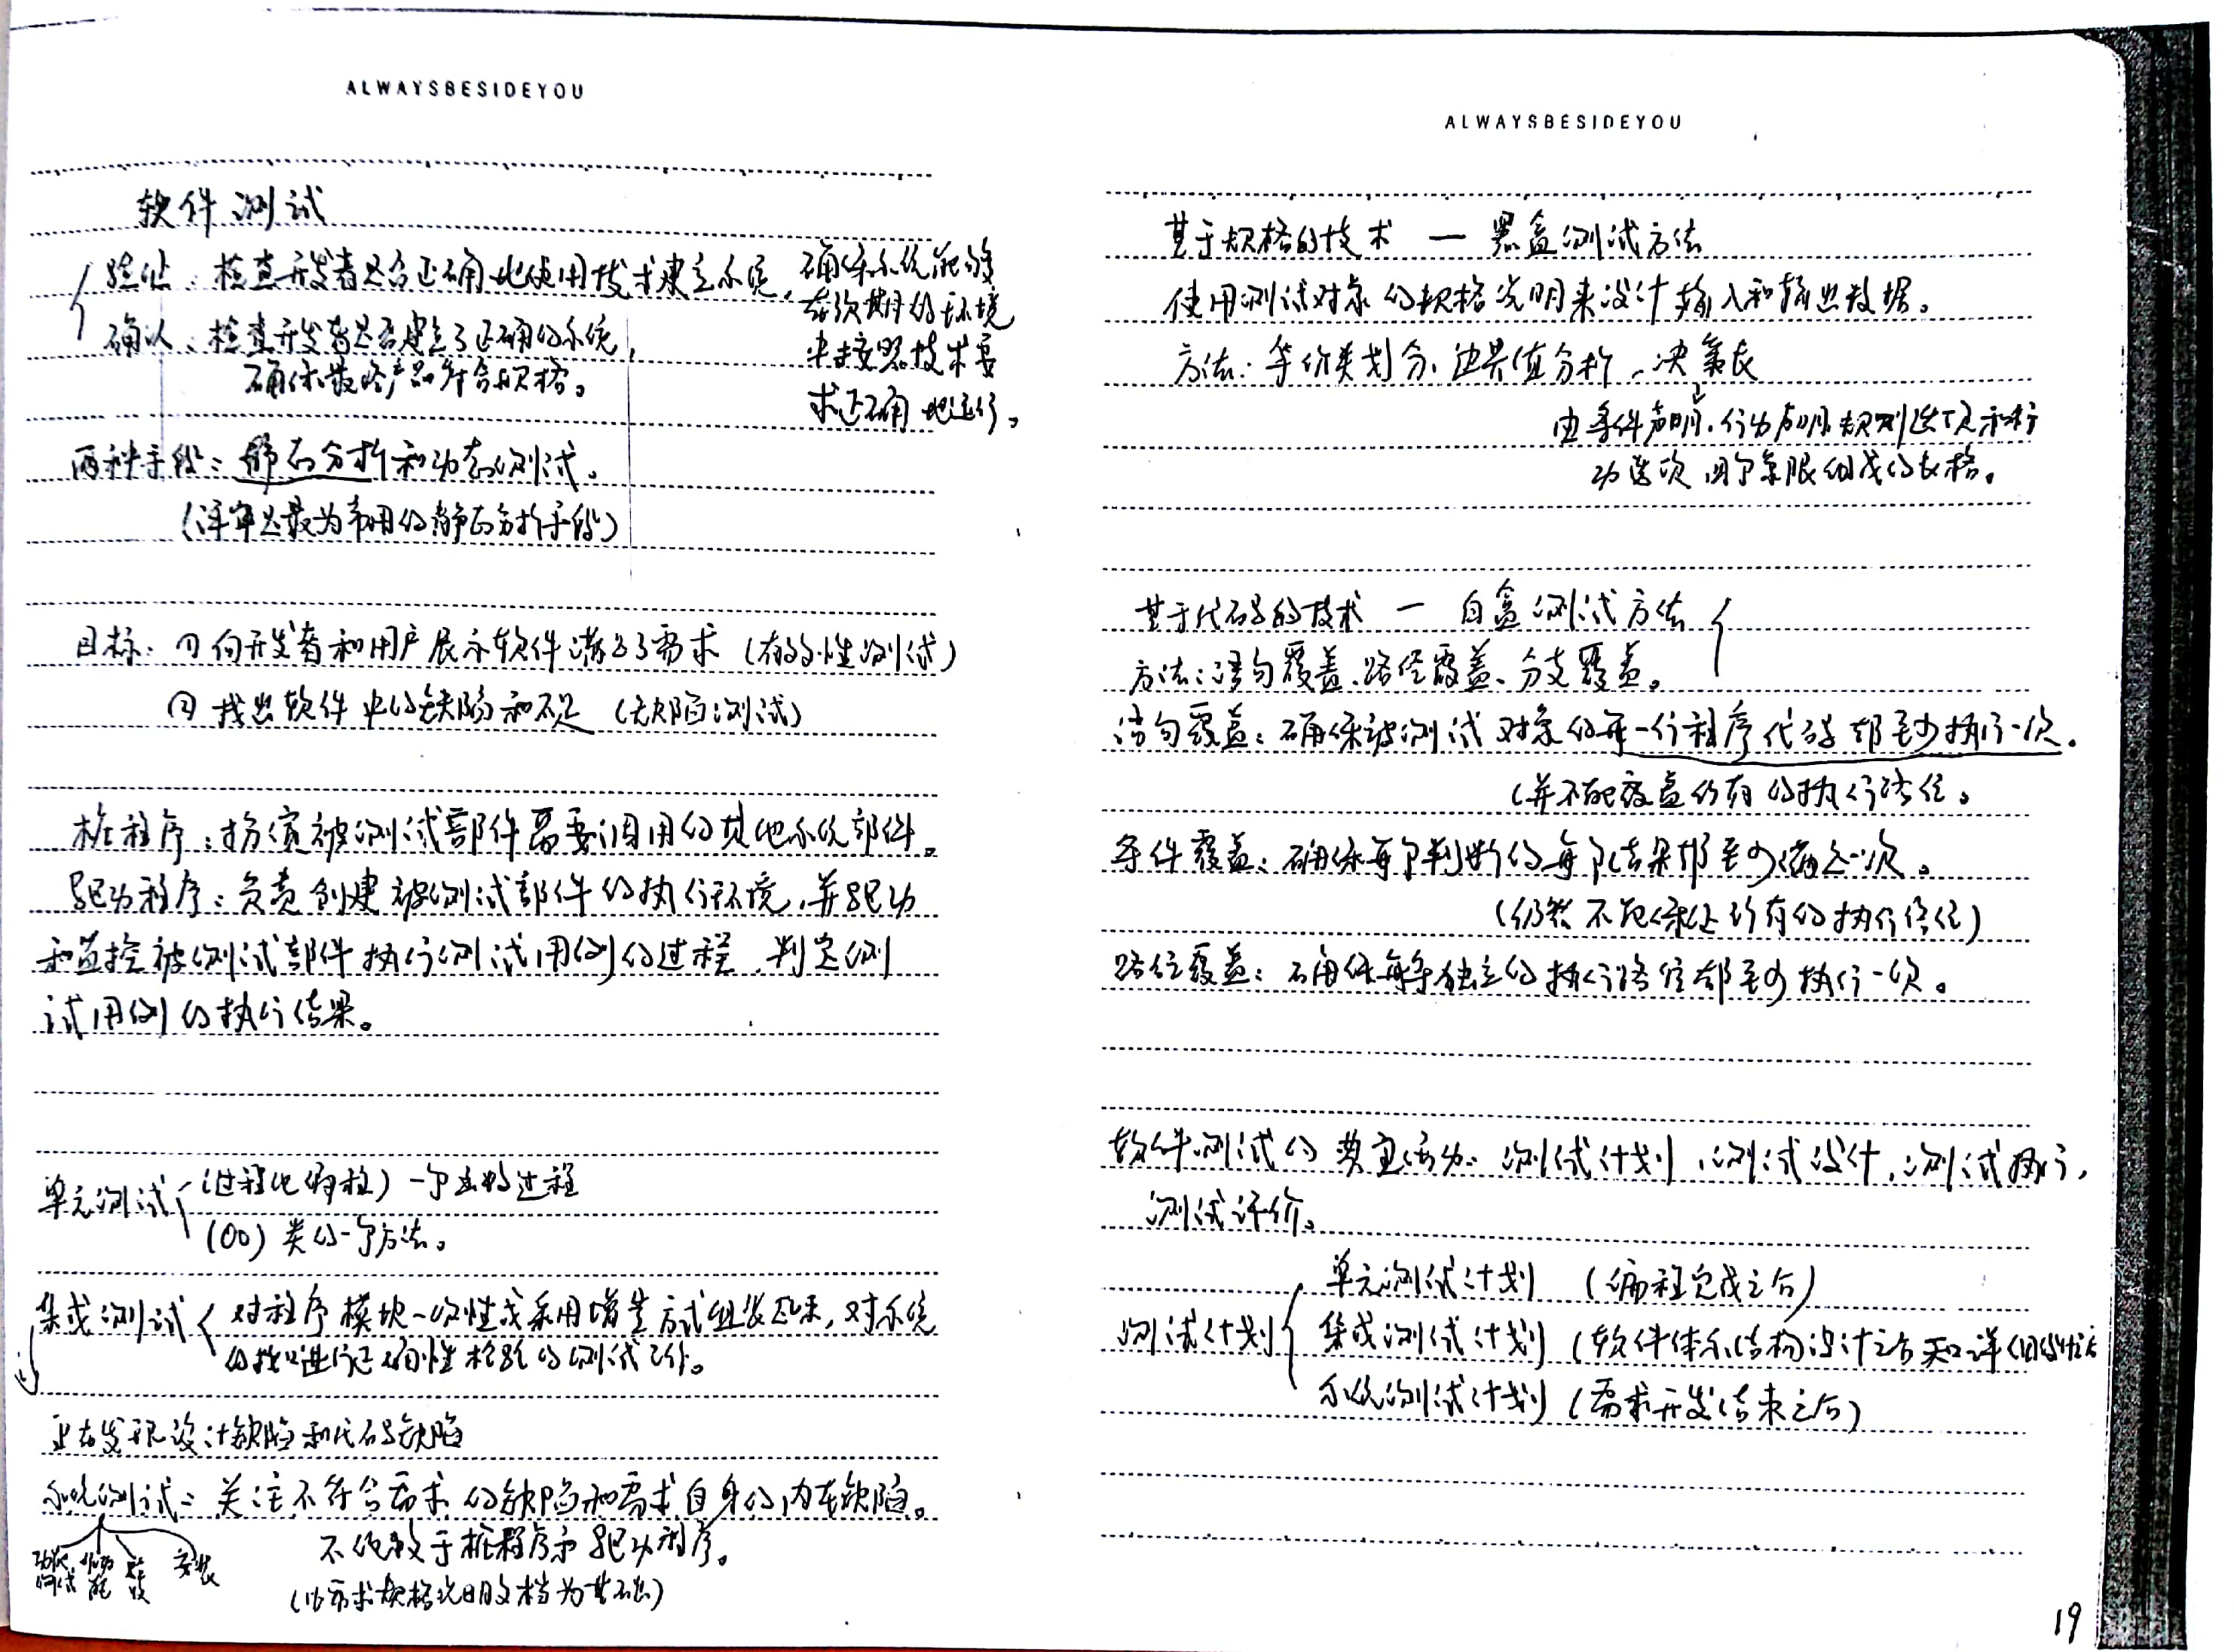 ALWAYSBESIDEYOU
软件测试
验证：检查开发者是否正确地使用技术建立系统，确保系统能够
在预期的环境
中按照技术要
求正确地运行。
确认：检查开发者是否建立了正确的系统，
确保最终产品符合规格。
两种手段：静态分析和动态测试。
（评审是最为常用的静态分析手段）
目标：① 向开发者和用户展示软件满足了需求（有效性测试）
② 找出软件中的缺陷和不足（缺陷测试）
桩程序：扮演被测试部件需要调用的其他系统部件。
驱动程序：负责创建被测试部件的执行环境，并驱动
和监控被测试部件执行测试用例的过程，判定测
试用例的执行结果。
单元测试（过程化编程）一个函数过程
（OO）类的一个方法。
集成测试 对程序模块一次性或采用增量方式组装起来，对系统
的接口进行正确性检验的测试工作。
重在发现设计缺陷和代码缺陷
系统测试：关注不符合需求的缺陷和需求自身的内在缺陷。
功能测试 非功能 验收 安装
不依赖于桩程序和驱动程序。
（以需求规格说明文档为基础）
ALWAYSBESIDEYOU
基于规格的技术 — 黑盒测试方法
使用测试对象的规格说明来设计输入和输出数据。
方法：等价类划分、边界值分析、决策表
由条件声明、行动声明、规则选项和行
动选项四个象限组成的表格。
基于代码的技术 — 白盒测试方法
方法：语句覆盖、路径覆盖、分支覆盖。
语句覆盖：确保被测试对象的每一行程序代码都至少执行一次。
（并不能覆盖所有的执行路径。
条件覆盖：确保每个判断的每个结果都至少满足一次。
（仍然不能保证所有的执行路径）
路径覆盖：确保每条独立的执行路径都至少执行一次。
软件测试的典型活动：测试计划，测试设计，测试执行，
测试评价。
测试计划
单元测试计划（编程完成之后）
集成测试计划（软件体系结构设计之后和详细设计之后
系统测试计划（需求开发结束之后）
19